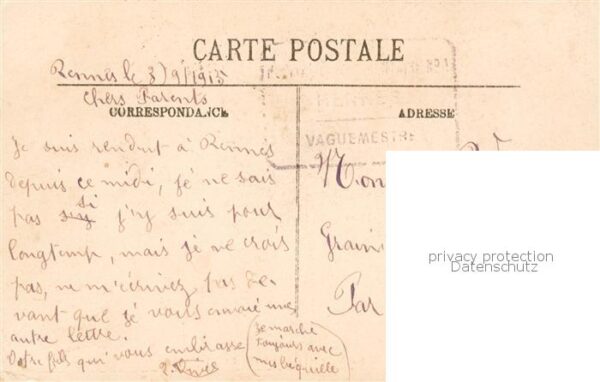 CARTE POSTALE
Rennes le 3/9/1915
chers Parents
CORRESPONDANCE
ADRESSE
RENNES
VAGUEMESTRE
Je suis rendut à Rennes
depuis ce midi, Jé ne sais
pas si j'y suis pour
longtemp, mais jé ne crois
pas, ne m'écrivez pas de
vant que je vous envoie une
autre lettre.
Votre fils qui vous embrasse
Je marche
toujours avec
mes béquille
Mon
Grain
Par
privacy protection
Datenschutz